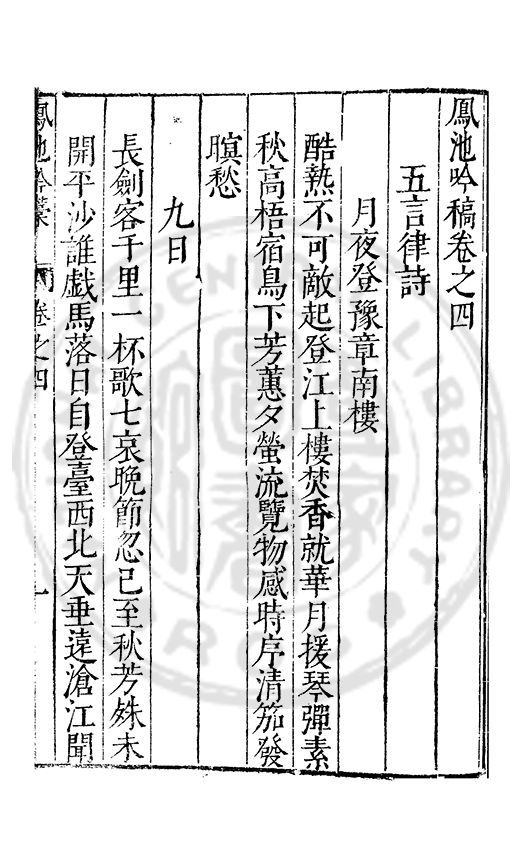 鳳池吟稿卷之四
五言律詩
月夜登豫章南樓
酷熱不可敵起登江上樓焚香就華月援琴彈素
秋高梧宿鳥下芳蕙夕螢流覽物感時序清笳發
暝愁
九日
長劍客千里一杯歌七哀晚節忽已至秋芳殊未
開平沙誰戯馬落日自登臺西北天垂遠滄江聞
鳳池吟藁 卷之四 一